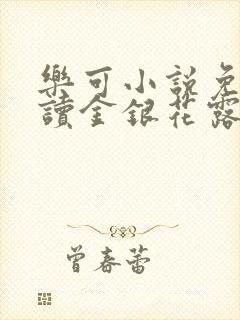 樂可小說免
讀金銀花露
曾春蕾